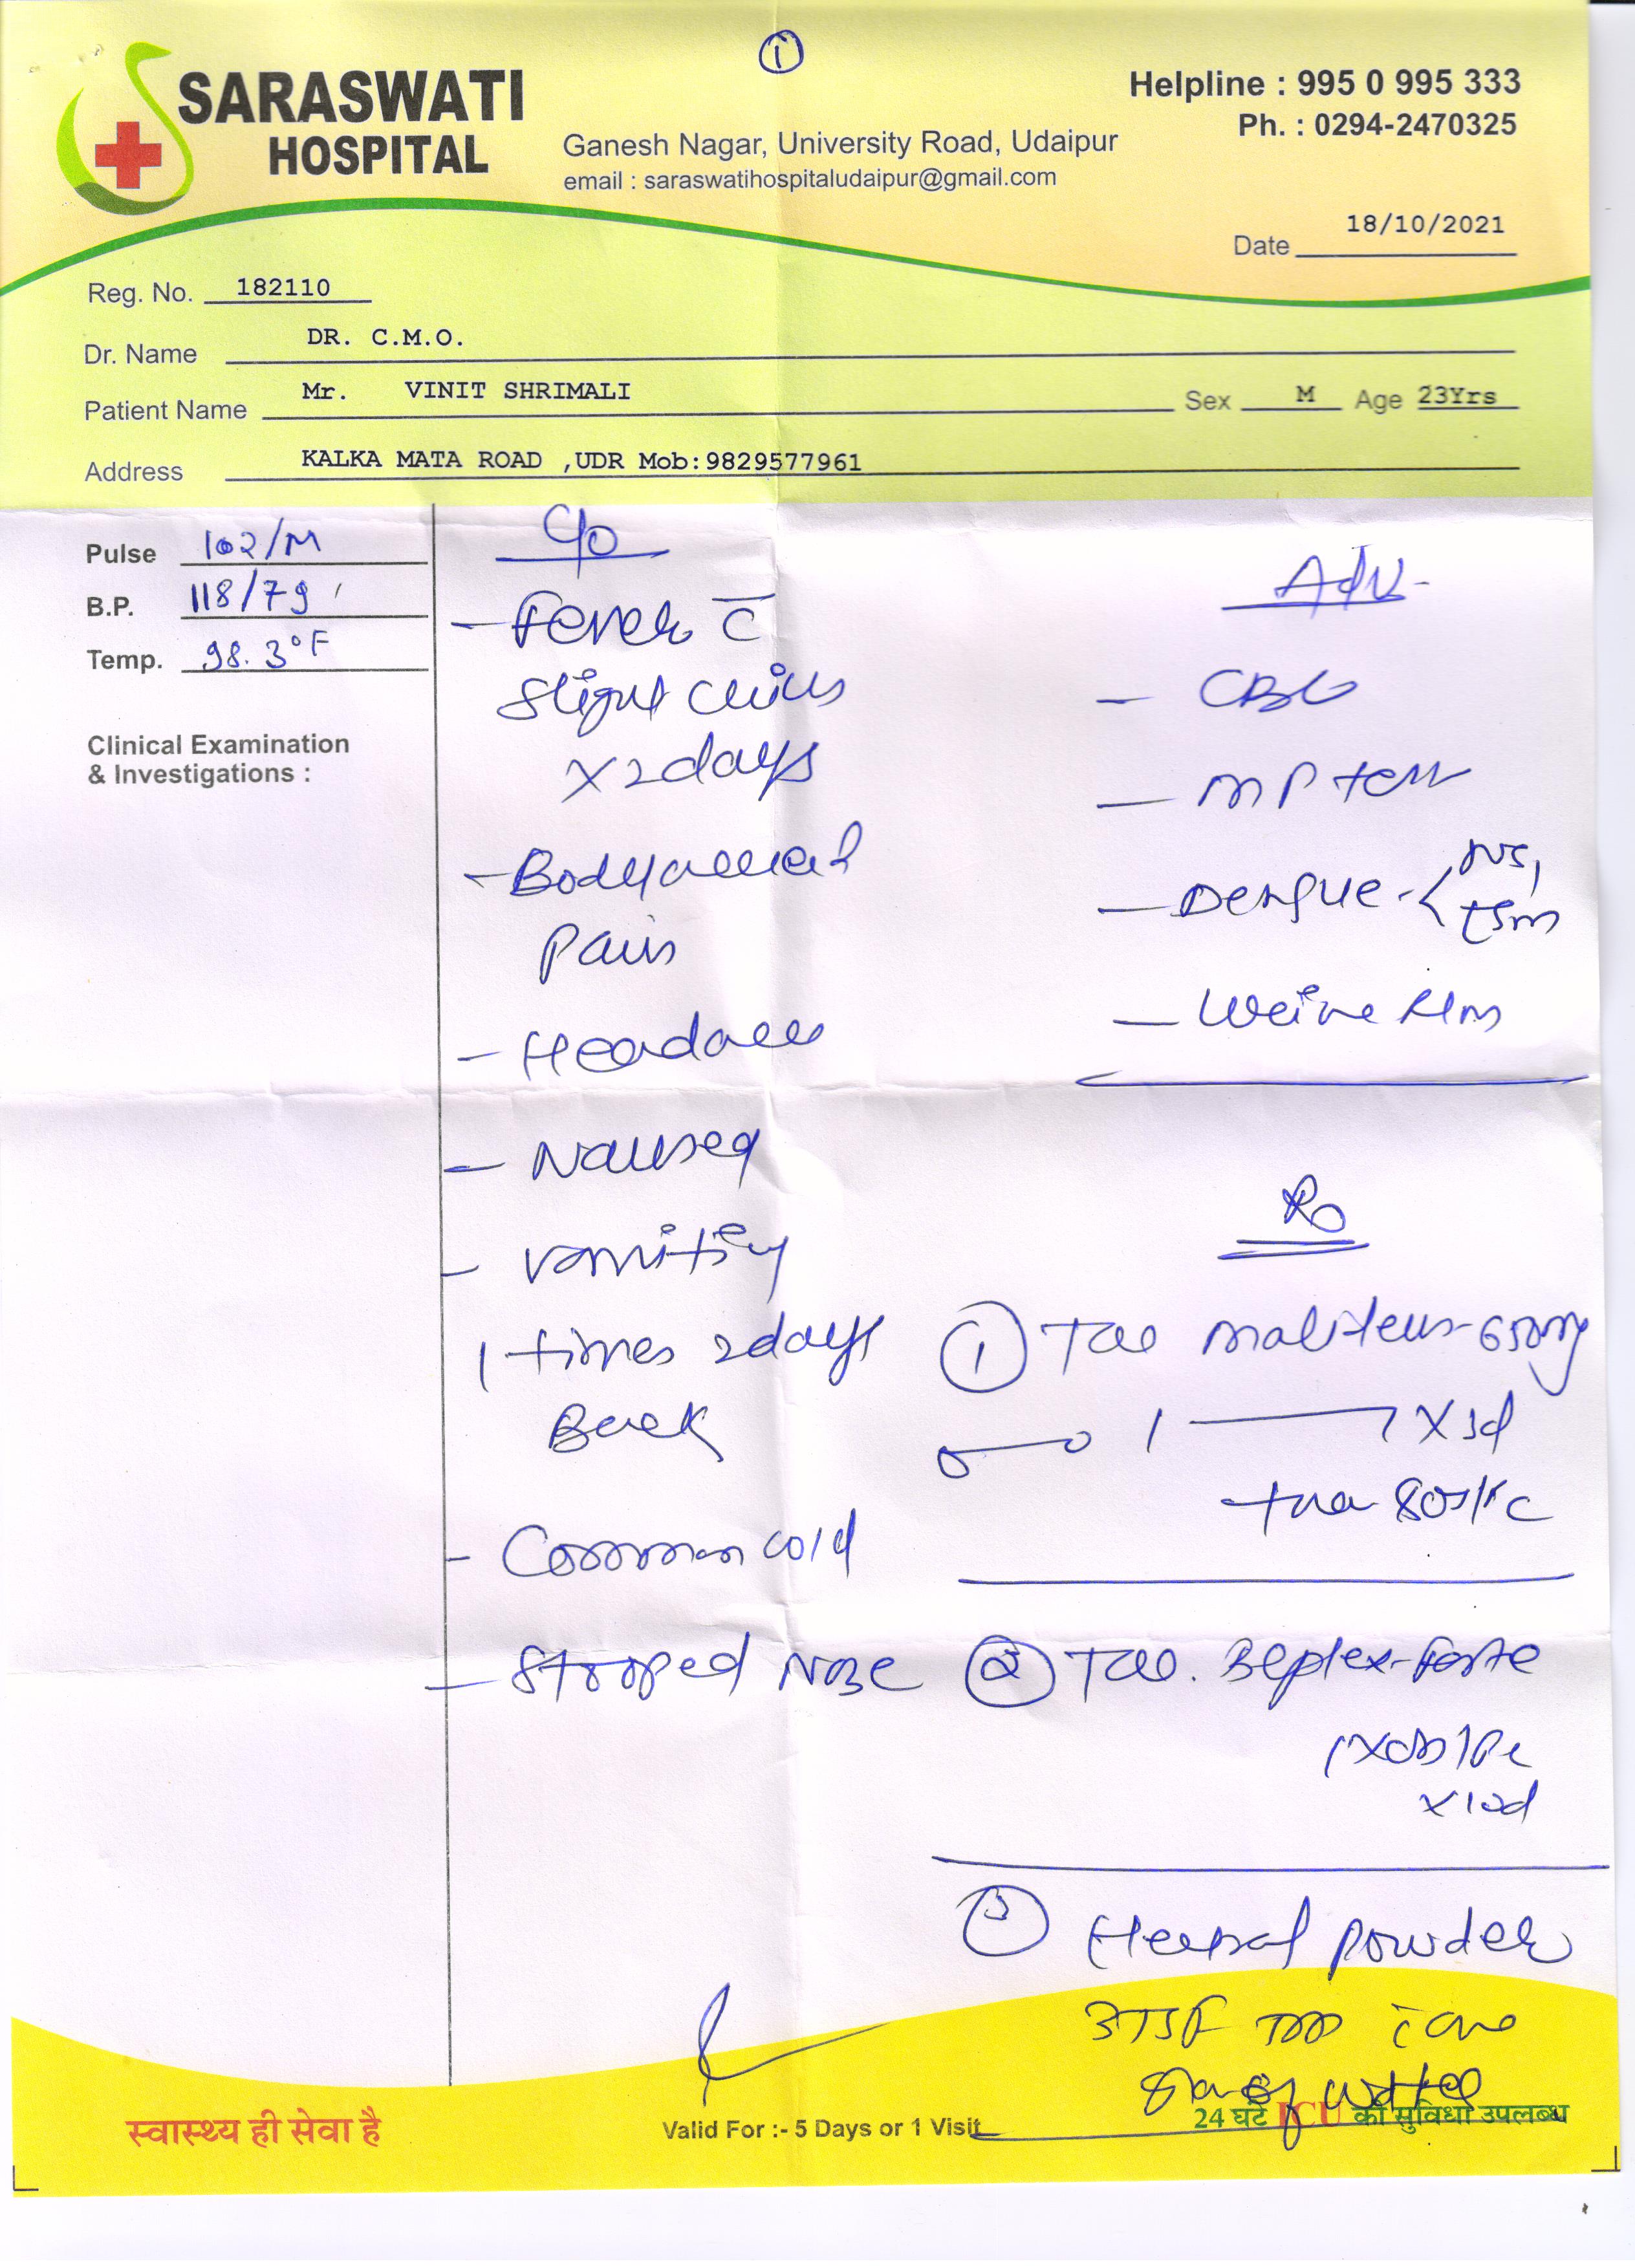 ①
SARASWATI
HOSPITAL
Ganesh Nagar, University Road, Udaipur
email : saraswatihospitaludaipur@gmail.com
Helpline : 995 0 995 333
Ph. : 0294-2470325
Date 18/10/2021
Reg. No. 182110
Dr. Name DR. C.M.O.
Patient Name Mr. VINIT SHRIMALI Sex M Age 23Yrs
Address KALKA MATA ROAD ,UDR Mob:9829577961
Pulse 102/M
B.P. 118/79
Temp. 98.3°F
Clinical Examination
& Investigations :
C/o
- Fever c̄
Slight chills
x 2 days
- Body
Pain
- Headache
- Nausea
- vomiting
1 times 2 days
Back
- Common cold
- Stopped Nose
Adv-
- CBC
- MP test
- Dengue - <
- Urine
Rx
① Tab 650mg
1 x 3d
② Tab. Beplex-Forte
1 x OD
x 10d
③ Herbal powder
of water
स्वास्थ्य ही सेवा है
Valid For :- 5 Days or 1 Visit
24 घंटे ICU की सुविधा उपलब्ध